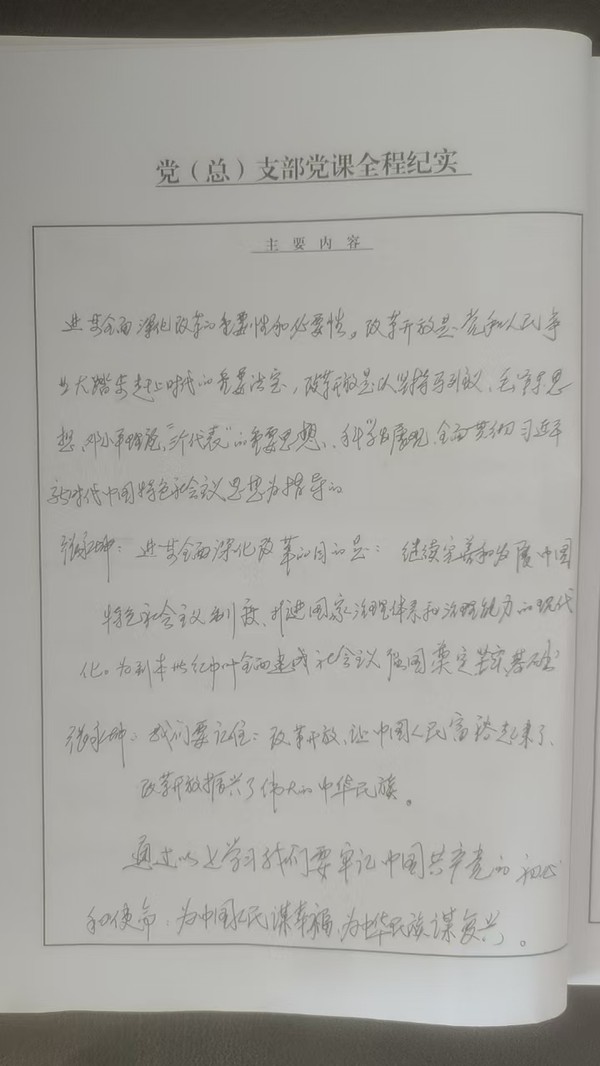 党（总）支部党课全程纪实
主要内容
进步全面深化改革的重要性和必要性。改革开放是党和人民事
业大踏步赶上时代的重要法宝，改革开放是以坚持马列主义、毛泽东思
想、邓小平理论、"三个代表"的重要思想、科学发展观、全面贯彻习近平
新时代中国特色社会主义思想为指导的
张永坤：进步全面深化改革的目的是：继续完善和发展中国
特色社会主义制度、推进国家治理体系和治理能力的现代
化。为到本世纪中叶全面建成社会主义强国奠定坚实基础
张永坤：我们要记住：改革开放、让中国人民富裕起来了、
改革开放振兴了伟大的中华民族。
通过以上学习我们要牢记中国共产党的初心
和使命，为中国人民谋幸福、为中华民族谋复兴。